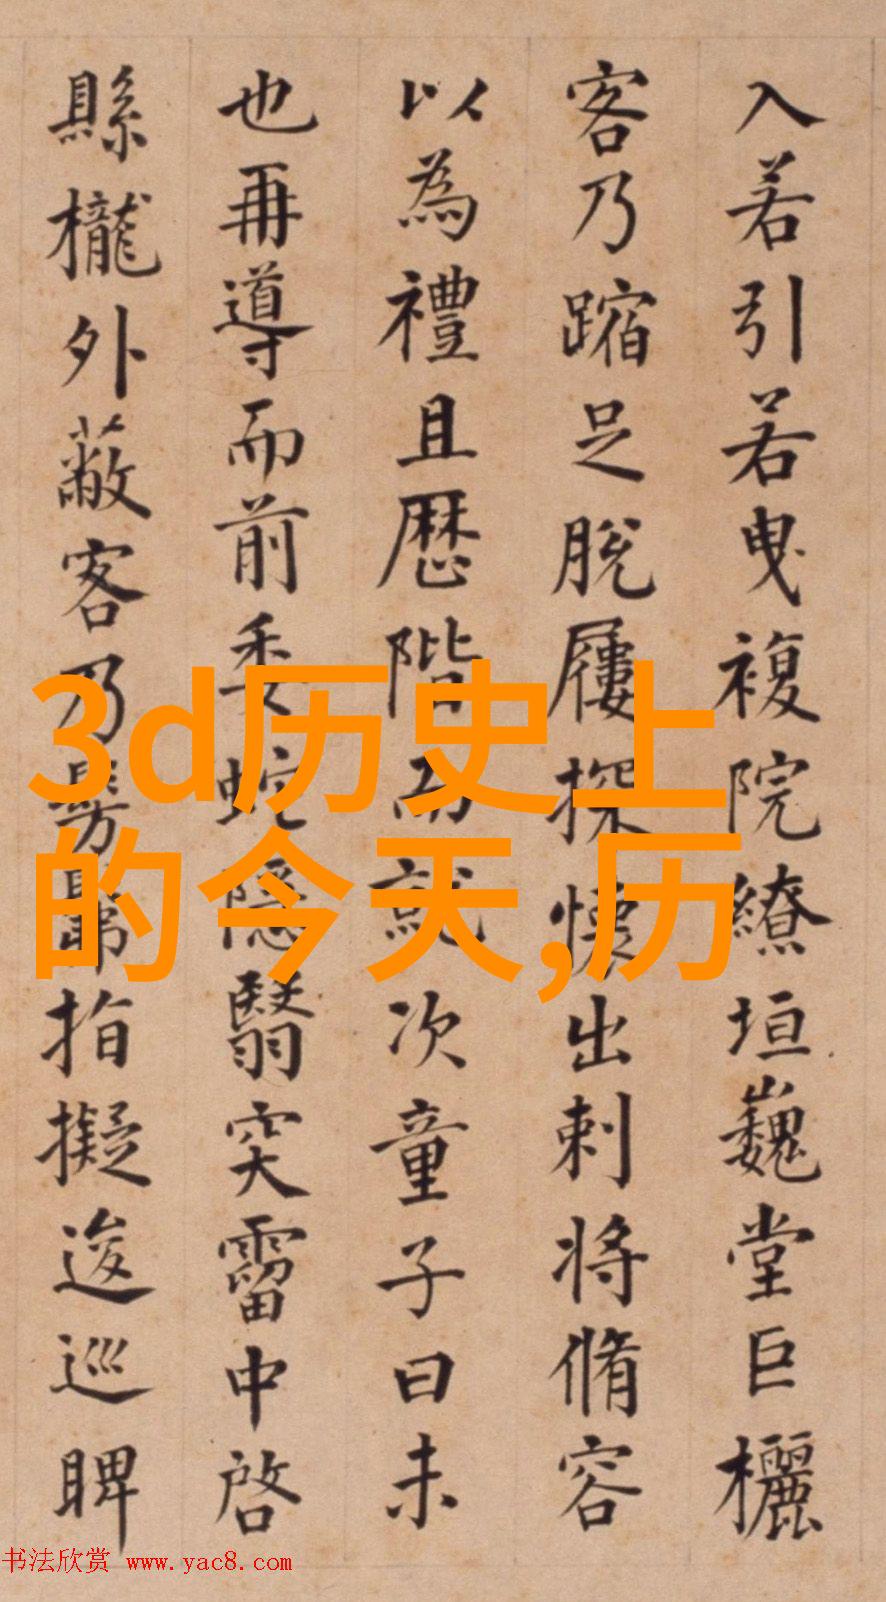 入若引若曳複院繚垣巍堂巨欐
客乃蹜足脫屨探懷出刺將脩容
以為禮且歷階而就次童子曰未
也再導而前委蛇隱翳穾霤中啓
縣櫳外蔽客乃髣髴指擬逡巡睥
3d历史上
的今天,历
书法欣赏 www.yac8.com